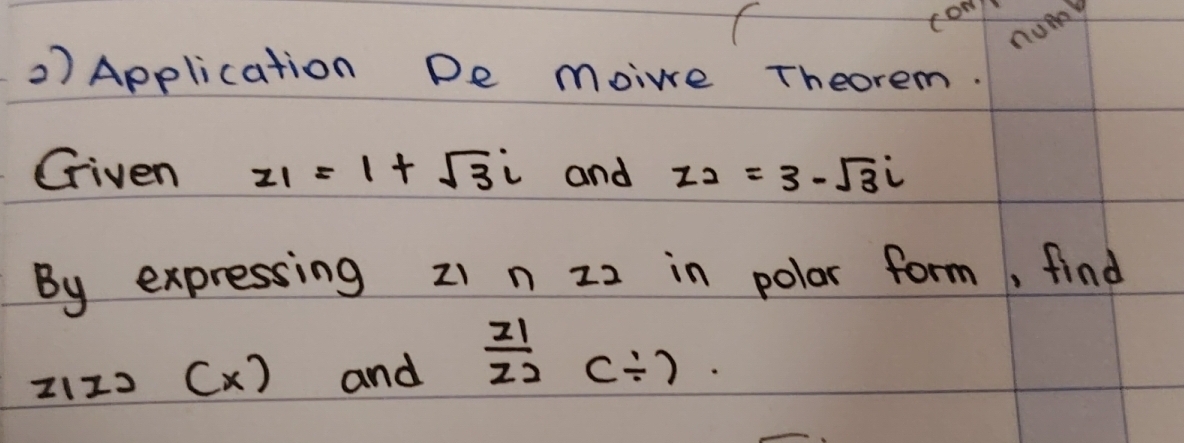 2) Application De Moivre Theorem.
Given z1 = 1 + √3i and z2 = 3 - √3i
By expressing z1 n z2 in polar form, find
z1z2 (×) and z1/z2 (÷).